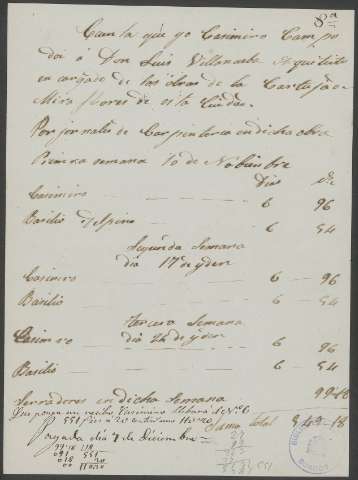 8ª
Cuenta que yo Casimiro Campo
doi á Don Luis Villanueba Arquitecto
encargado de las obras de la Cartuja de
Miraflores de esta Ciudad.
Por jornales de Carpinteria en dicha obra
Primera semana 10 de Nobienbre
Dias Rs
Casimiro 6 96
Basilio Despino 6 54
Segunda Semana
dia 17 de yden
Casimiro 6 96
Basilio 6 54
tercera Semana
dia 24 de yden
Casimiro 6 96
Basilio 6 54
Serradores en dicha semana 99-18
Suma total 549-18
551
Pagada dia 7 de Diciembre